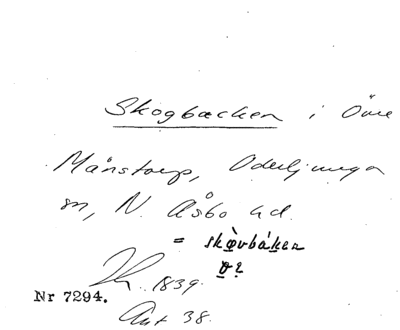 Skogbacken i Övre
Månstorp, Oderljunga
sn, N. Åsbo hd.
= skòvbáken
v?
1839.
Nr 7294.
Ant 38.